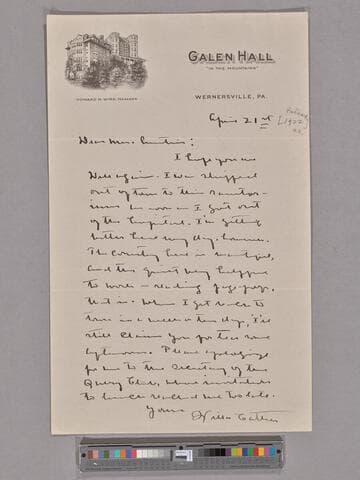 GALEN HALL
"IN THE MOUNTAINS"
HOWARD M. WING, MANAGER
WERNERSVILLE, PA.
April 21st
[1922]
Dear Mrs.
I hope you are
Well again. I was shipped
out of town to this sanitor-
ium as soon as I got out
of the hospital. I'm getting
better here every day, however.
The country here is beautiful,
and the quiet very helpful
to work - reading page proofs,
that is. When I get back to
town in a week or ten days, I'll
still claim you for tea some
afternoon. Please apologize
for me to the Secretary of the
Query Club, whose invitation
to lunch reached me too late.
Yours
Willa Cather